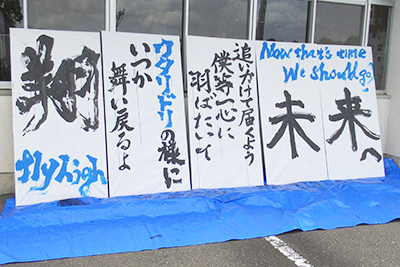 翔
fly high
ワタリドリの様に
いつか
舞い戻るよ
追いかけて届くよう
僕等一心に
羽ばたいて
Now that's time
We should go!
未来へ